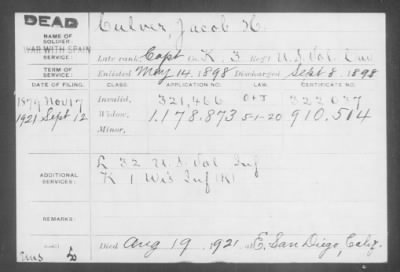 DEAD
NAME OF SOLDIER: Culver, Jacob H.
WAR WITH SPAIN
SERVICE: Late rank, Capt Co. K. 3 Reg't U.S. Vol. Cav
TERM OF SERVICE: Enlisted May 14. 1898 Discharged Sept 8. 1898
DATE OF FILING. CLASS. APPLICATION NO. LAW. CERTIFICATE NO.
1879 Nov 17 Invalid, 321,466 322077
1921 Sept 12 Widow, 1.178.873 5-1-20 910,514
Minor,
L 32 U.S. Vol Inf
ADDITIONAL SERVICES: K 1 Wis Inf
REMARKS:
Died Aug 19, 1921 at E. San Diego, Calif.